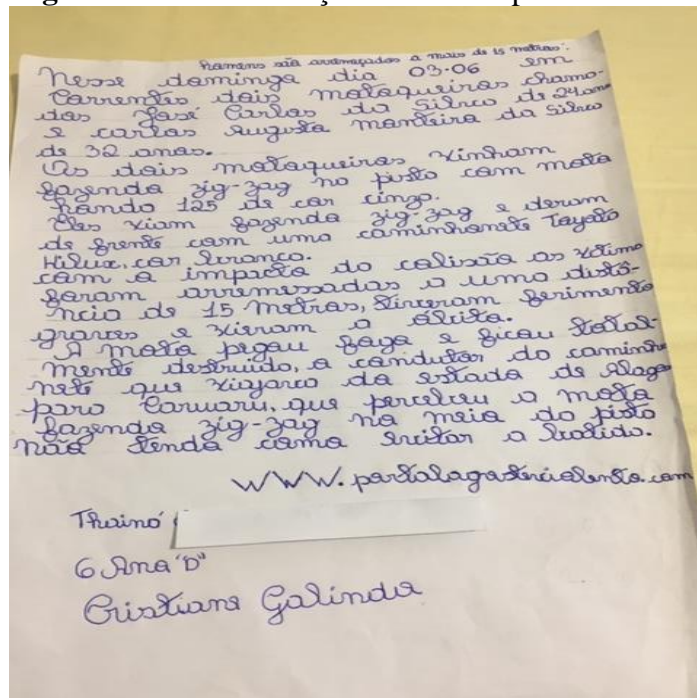 homens são arremeçados a mais de 15 metros.
Nesse domingo dia 03-06 em
Correntes dois motoqueiros chamo-
dos José Carlos da Silva de 24 ano
e carlos Augusto monteiro da Silva
de 32 anos.
Os dois motoqueiros vinham
fazendo zig-zag na pista com moto
honda 125 de cor cinza.
Eles viam fazendo zig-zag e deram
de frente com uma caminhonete Toyota
Hilux, cor branco.
com o impacto da colisão as vitima
foram arremessadas a uma distâ-
ncia de 15 metros, tiveram ferimento
graves e vieram a óbito.
A moto pegou fogo e ficou total-
mente destruida, o condutor da caminho
nete que viajava do estado de Alago
para Caruaru, que percebeu a moto
fazendo zig-zag no meio da pista
não tendo como evitar a batida.
www.portalagresteviolento.com
Thainá
6 Ano "D"
Cristiane Galindo